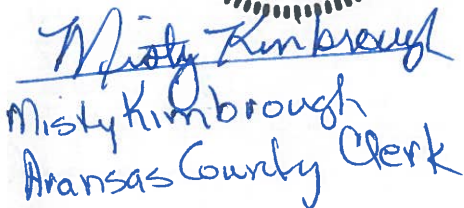 Misty Kimbrough
Misty Kimbrough
Aransas County Clerk